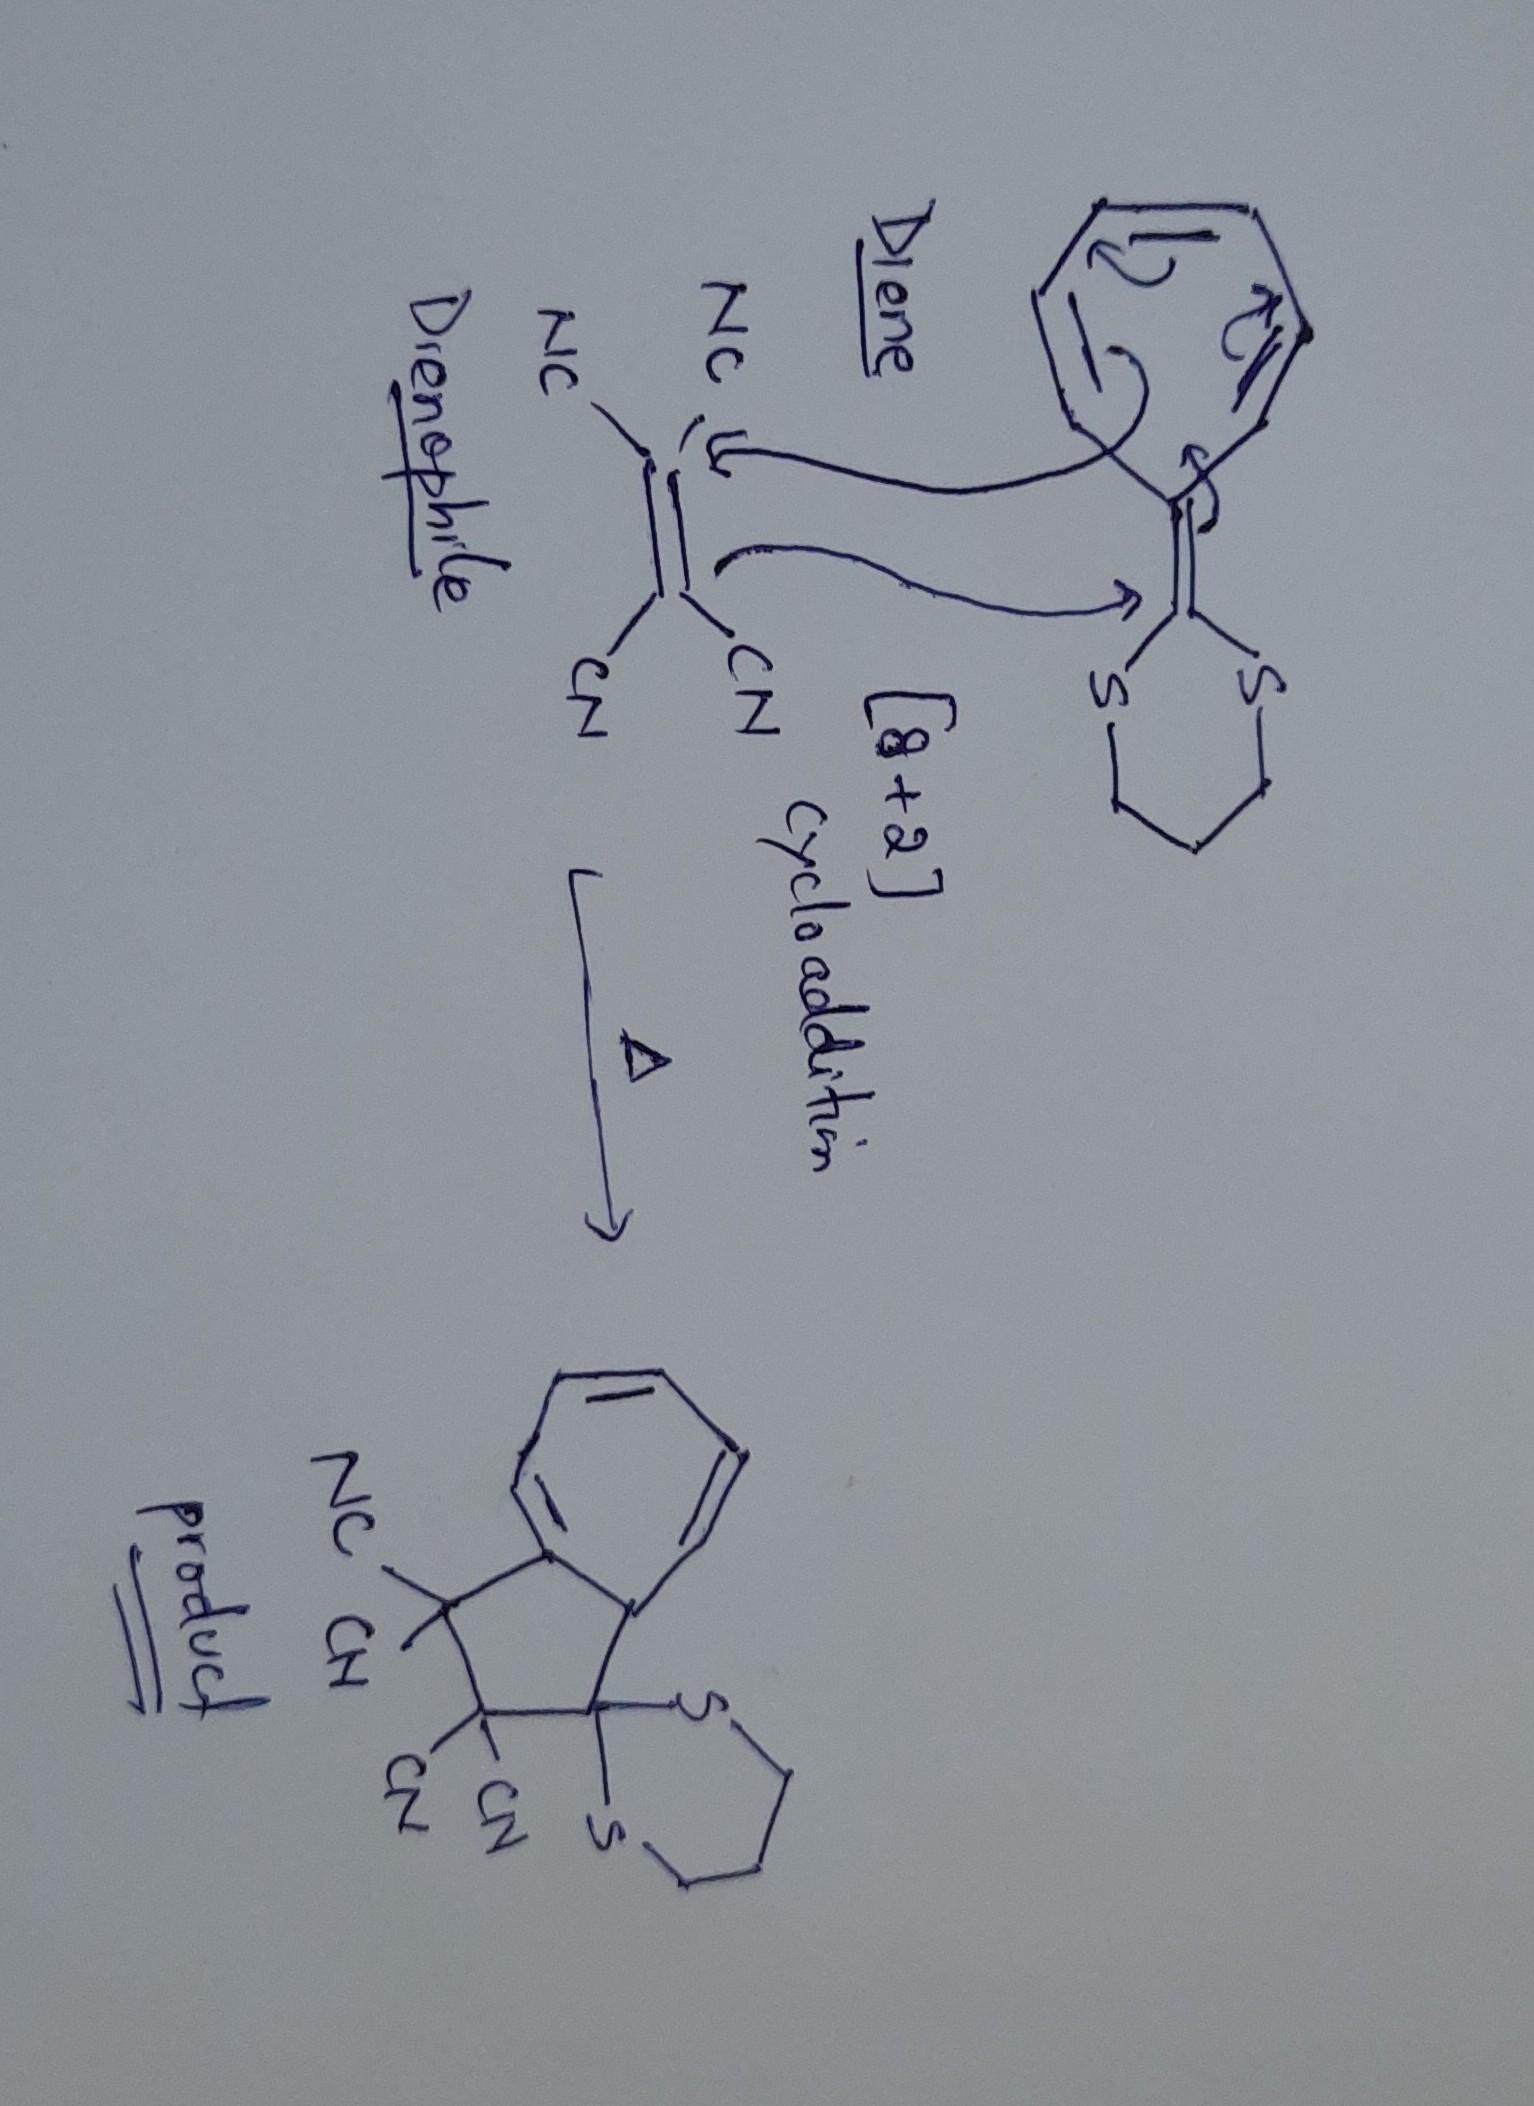 S
S
Diene
[8+2]
Cycloadditin
NC
CN
NC
CN
Dienophile
Δ
S
S
NC
CN
CN
CN
product